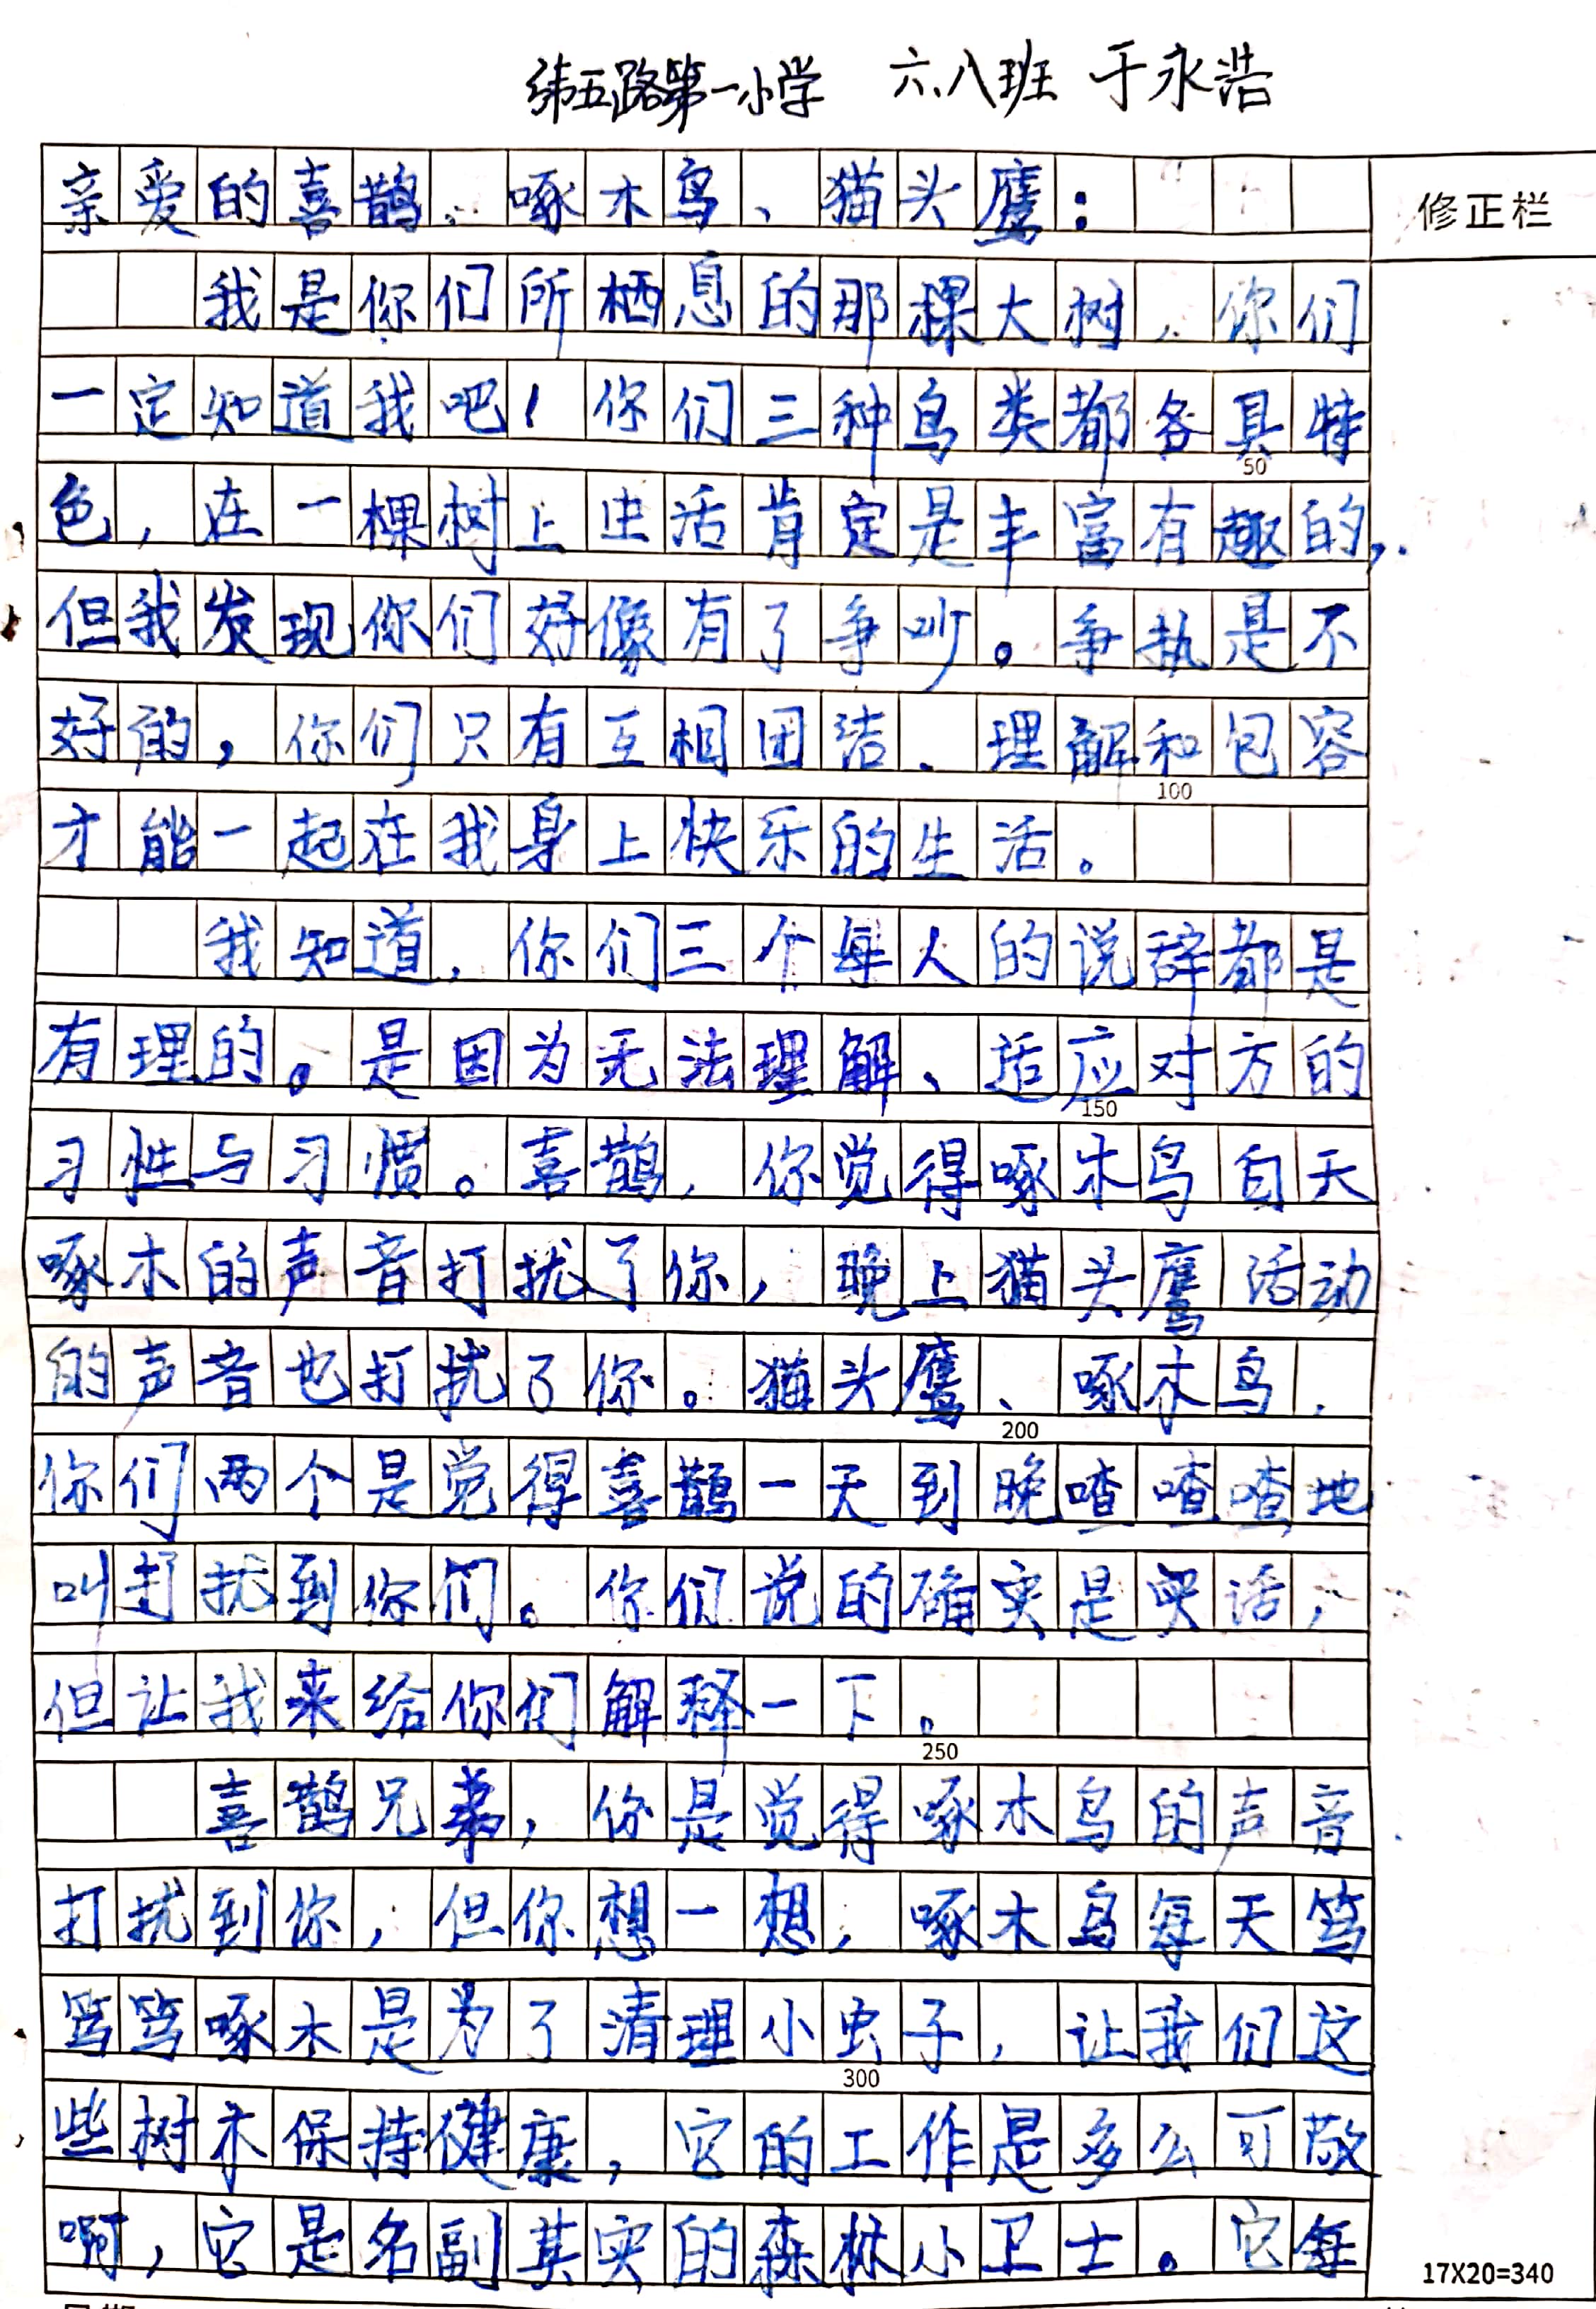 纬五路第一小学 六.八班 于永浩
亲爱的喜鹊、啄木鸟、猫头鹰：
修正栏
我是你们所栖息的那棵大树，你们
一定知道我吧！你们三种鸟类都各具特
50
色，在一棵树上生活肯定是丰富有趣的，
但我发现你们好像有了争吵。争执是不
好的，你们只有互相团结、理解和包容
100
才能一起在我身上快乐的生活。
我知道，你们三个每人的说辞都是
有理的。是因为无法理解、适应对方的
150
习性与习惯。喜鹊，你觉得啄木鸟白天
啄木的声音打扰了你，晚上猫头鹰活动
的声音也打扰了你。猫头鹰、啄木鸟，
200
你们两个是觉得喜鹊一天到晚喳喳喳地
叫打扰到你们。你们说的确实是实话，
但让我来给你们解释一下。
250
喜鹊兄弟，你是觉得啄木鸟的声音
打扰到你，但你想一想，啄木鸟每天笃
笃笃啄木是为了清理小虫子，让我们这
300
些树木保持健康，它的工作是多么可敬
啊，它是名副其实的森林小卫士。它每
17X20=340